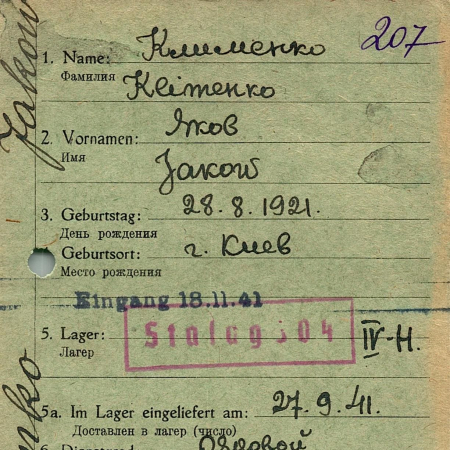 207
1. Name: Клименко
Фамилия Klimenko
2. Vornamen: Яков
Имя
Jakow
3. Geburtstag: 28.8.1921.
День рождения
Geburtsort: г. Киев
Место рождения
Eingang 18.11.41
5. Lager: Stalag 304 IV-H.
Лагерь
5a. Im Lager eingeliefert am: 27.9.41.
Доставлен в лагерь (число)
Jakow